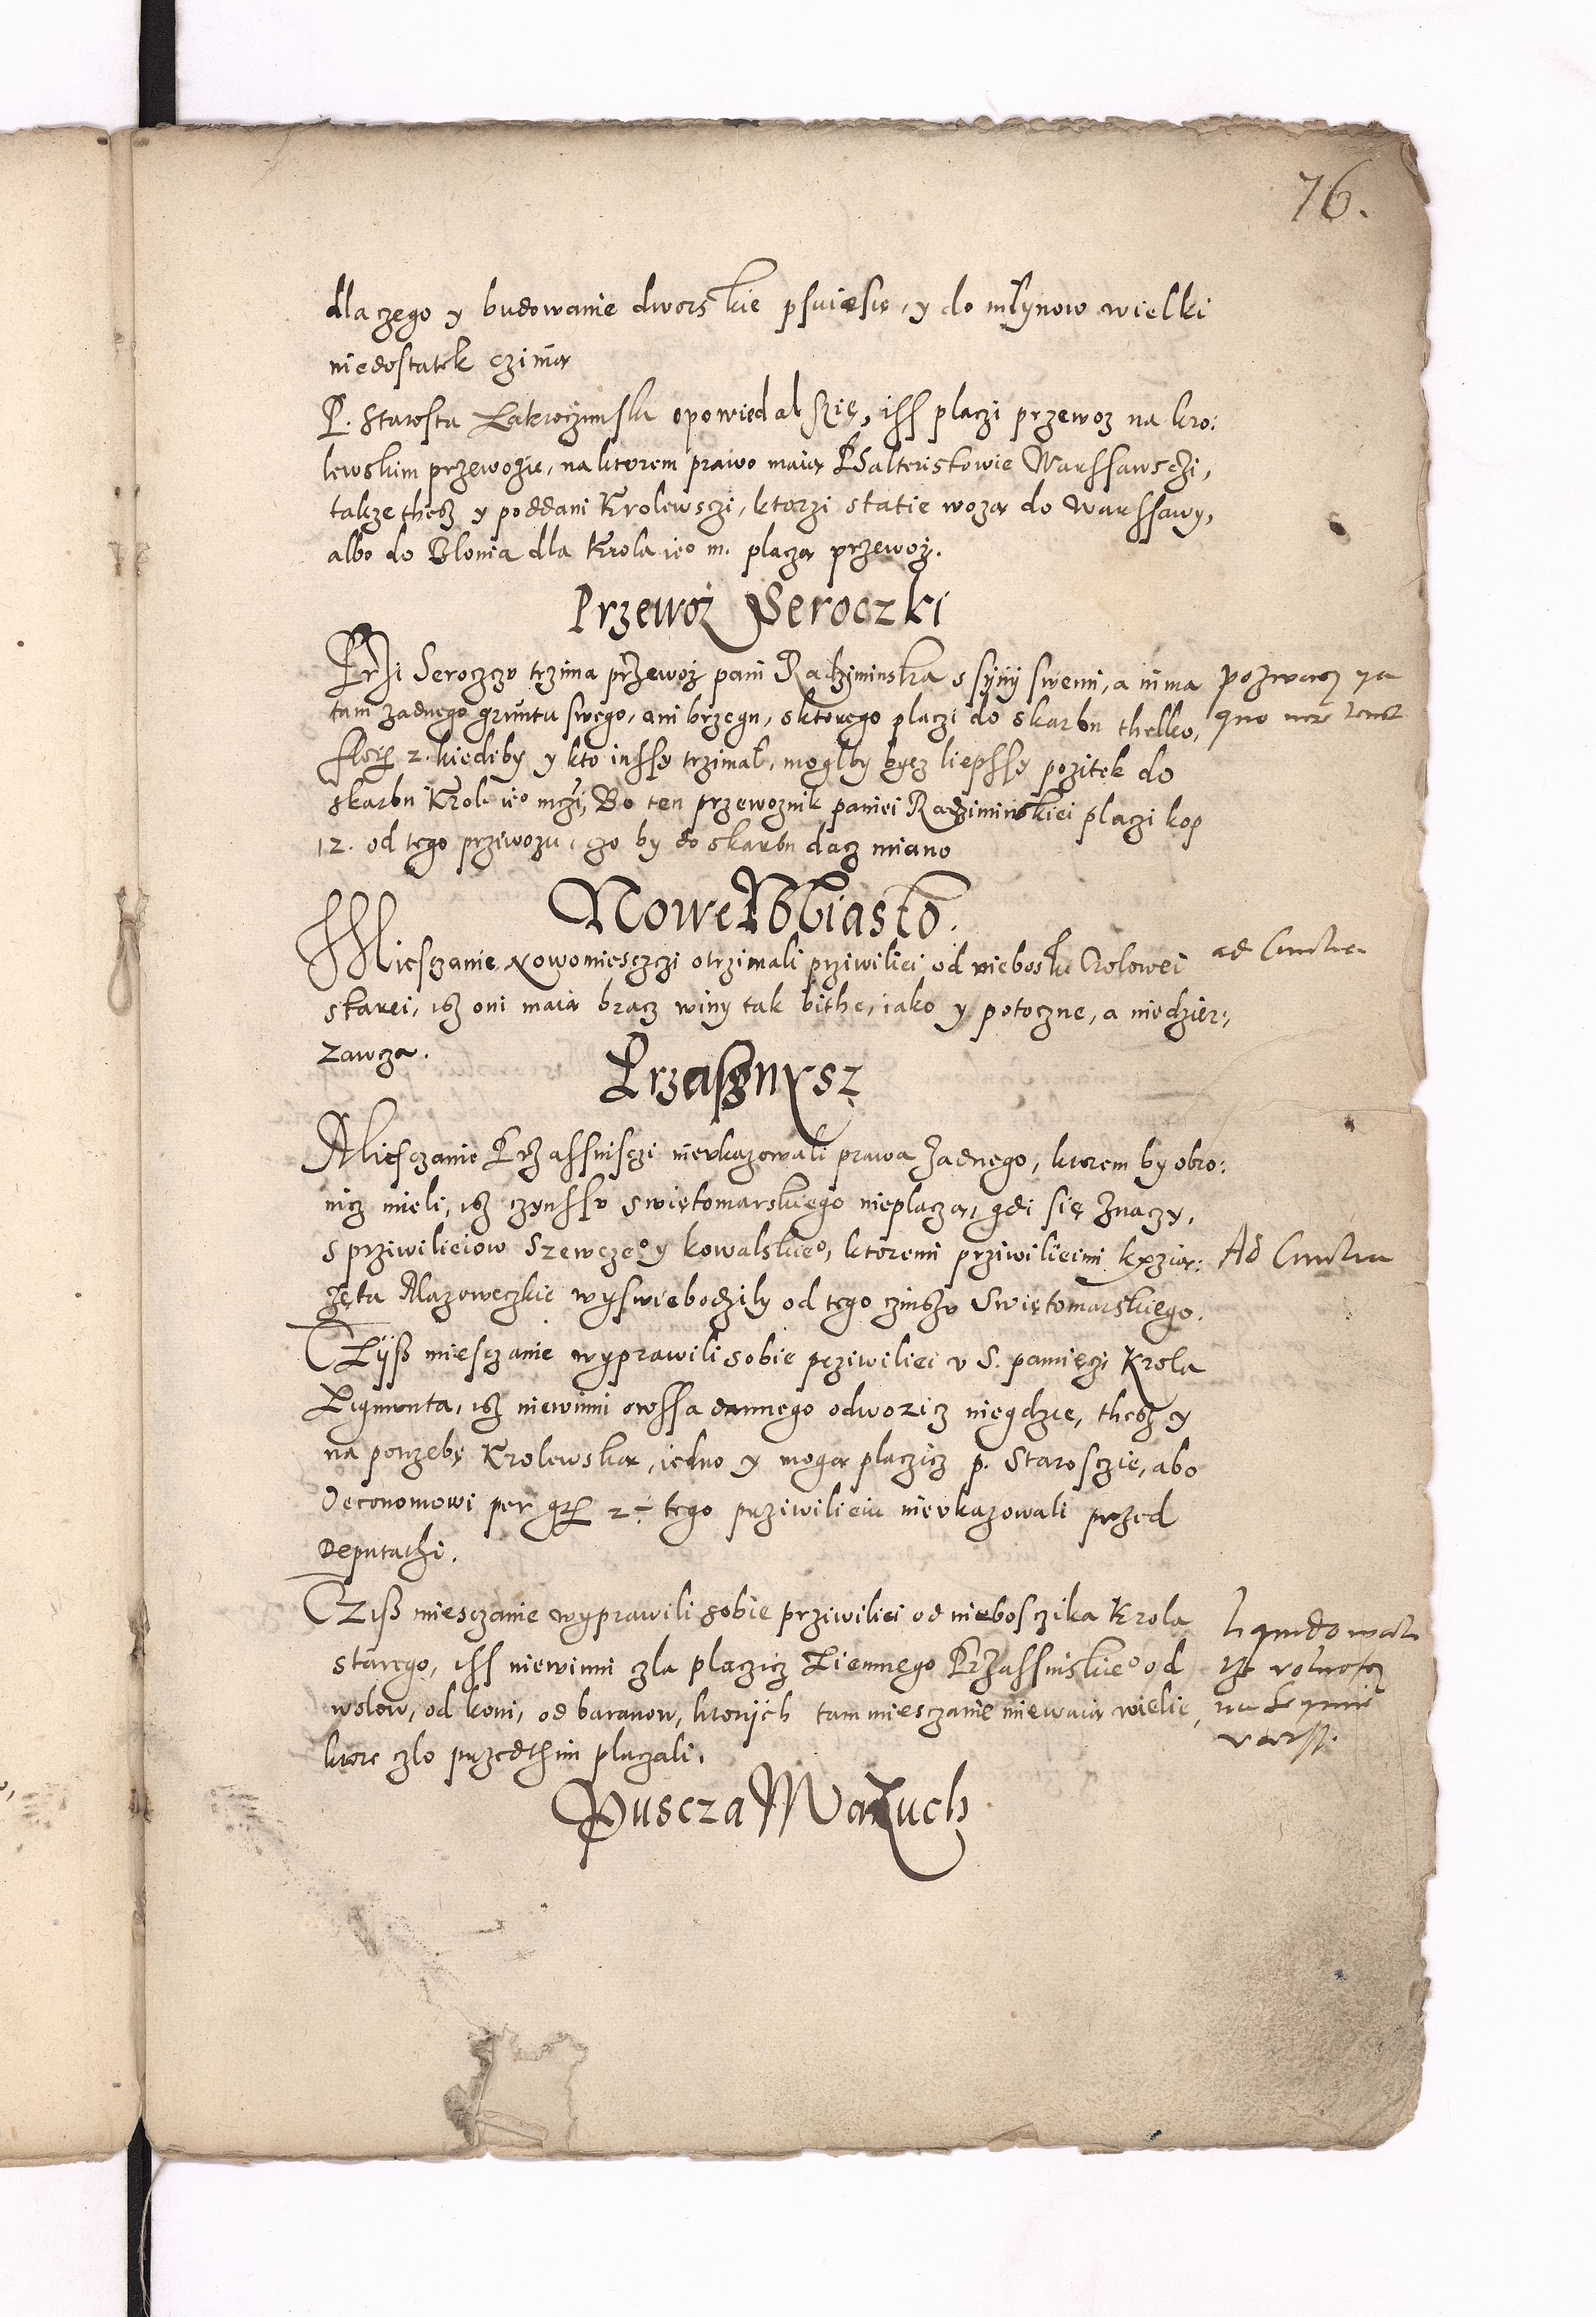 76.
dla czego y budowanie dworskie psuie sie, y do młynow wielki
niedostatek czinią
P. Starosta Zakroczimski opowiedal szię, iss placzi przewoz na kro:
lewskim przewozie, na ktorem prawo maią Walteriskowie Warssawsczi,
takze thesz y poddani Krolewsczi, ktorzi statie wozą do Warssawy,
albo do Blonia dla Krola ie° m. placzą przewoz.
Przewoz Seroczki
Przi Seroczcu trzima przewoz pani Radziminska s syny swemi, a nima
tam zadnego gruntu swego, ani brzegu, s ktorego placzi do skarbu thelko,
flor. 2. kiediby y kto inssy trzimał, mogłby bycz liepssy pozitek do
skarbu Krol. ie° mczi, Bo ten przewoznik paniei Radziminskiei placzi kop
12. od tego przewozu, czo by do skarbu dacz miano
pozwacz
quo
Nowe Miasto.
Miesczanie Nowomiesczczi otrzimali prziwiliei od nieboski Crolowei
ad
starei, isz oni maią bracz winy tak bithe, iako y potoczne, a niedzier,
zawcza.
Przasznysz
Miesczanie Przassnisczi nieukazowali prawa zadnego, ktorem by obro:
nicz mieli, isz czynssu swiętomarskiego nieplaczą, gdi się znaczy,
s prziwilieiow Szewcze° y kowalskie°, ktoremi prziwilieimi kxzią:
Ad
zęta Mazoweczkie wyswiebodzily od tego czinszu Swiętomarskiego.
Czyß miesczanie wyprawili sobie prziwiliei u S. pamięczi Krola
Zigmunta, isz niewinni owssa dannego odwozicz niegdzie, thesz y
na potrzebę Krolewską, iedno y mogą placzicz p. Starosczie, abo
Oeconomowi per gr. 2 tego prziwilieiu nieukazowali przed
Deputathi.
Cziß miesczanie wyprawili sobie prziwiliei od niebosczika Krola
starego, iss niewinni czla placzicz Ziemnego Przassniskie° od
wolow, od koni, od baranow, ktorych tam miesczanie miewaią wielie,
ktore czlo przedthim placzali.
na Seymie
Puscza Mazuch